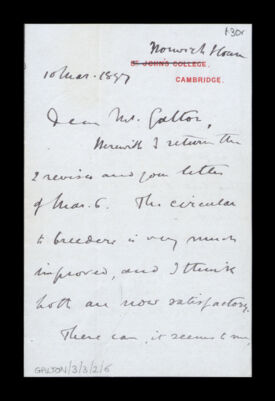 Norwich House
ST JOHN'S COLLEGE,
CAMBRIDGE.
10 Mar. 1897
Dear Mr. Galton,
Herewith I return the
2 revises and your letter
of Mar. 6. The circular
to breeders is very much
improved, and I think
both are now satisfactory.
There can, it seems to me,
GALTON/3/3/2/6